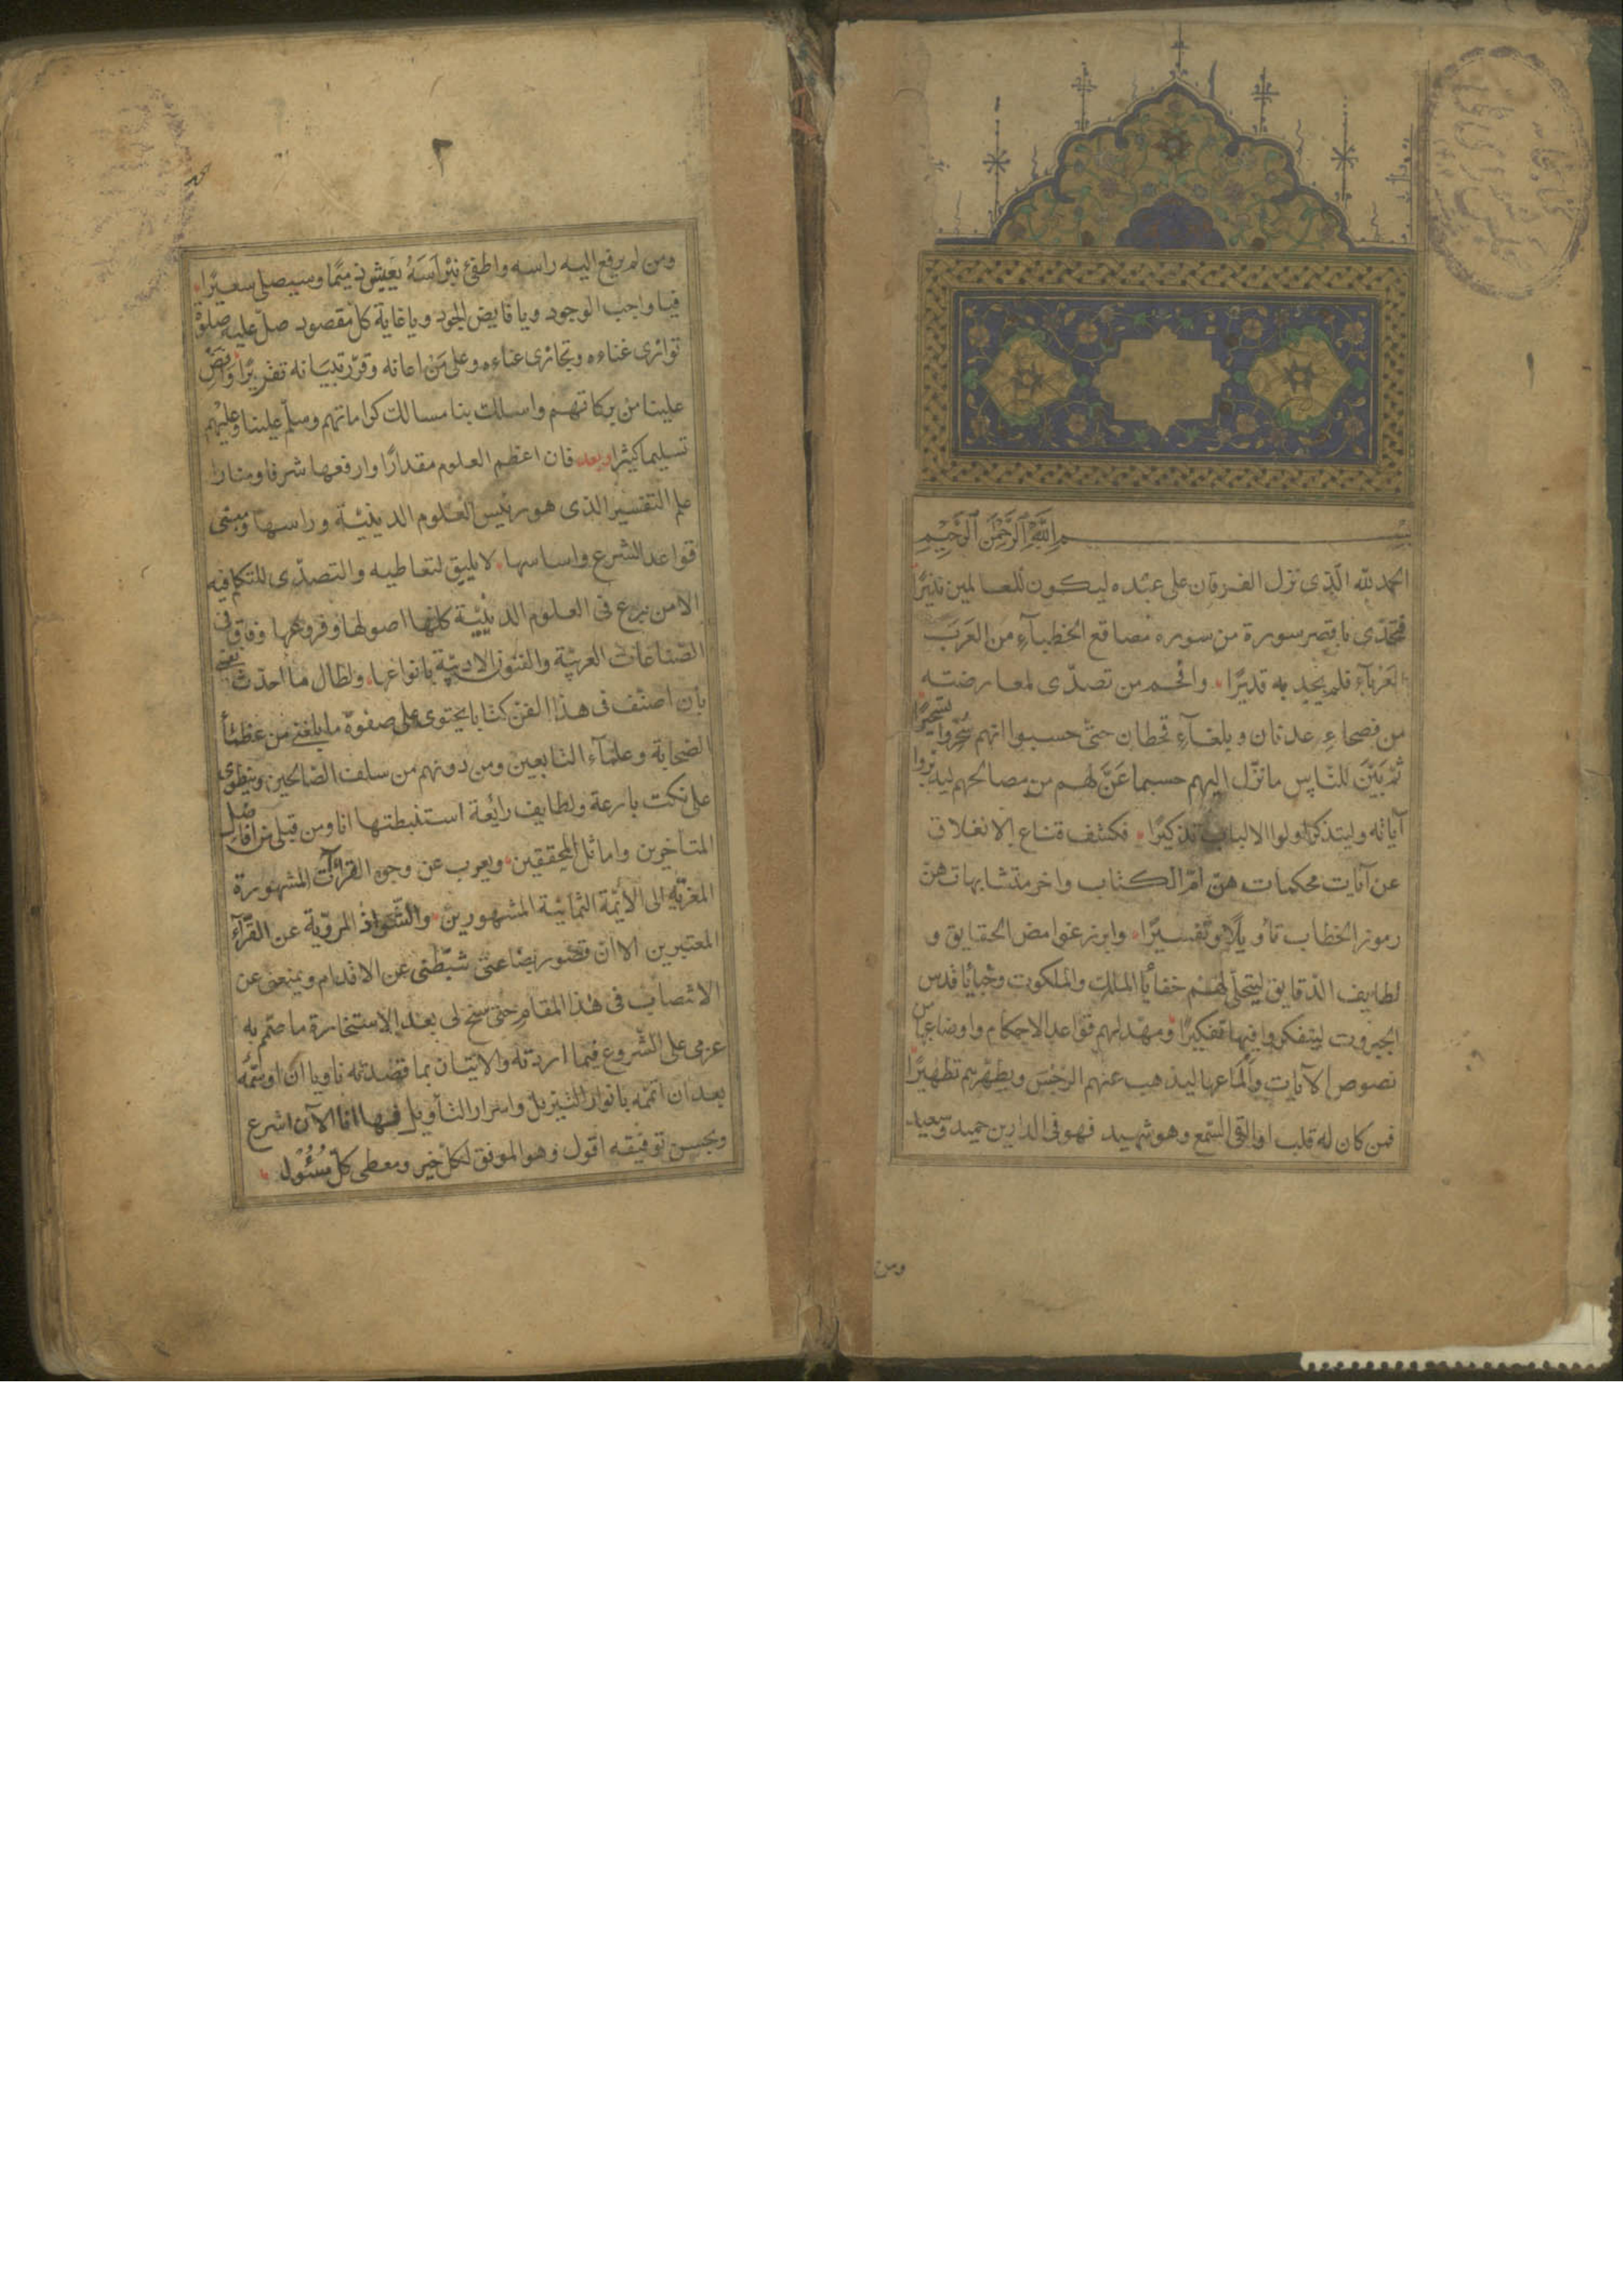 ١
بسم الله الرحمن الرحيم
الحمد لله الّذى نزل الفرقان على عبده ليكون للعالمين نذيرًا
فتحدّى باقصر سورة من سوره مصاقع الخطبآءِ من العَرَب
العَرْبآءِ فلم يجد به قديرًا وافحم من تصدّى لمعارضته
من فصحاءِ عدنان وبلغآءِ قحطان حتىّ حسبوا انهم سُحِّروا تسحيرًا
ثمّ بَيَّنَ للنّاس ما نزّل اليهم حسبما عَنَّ لهم من مصالحهم ليدبّروا
آياته وليتذكر اولوا الالباب تذكيرًا فكشف قناع الانغلاق
عن آيات محكمات هنّ امّ الكتاب واخر متشابهات هنّ
رموز الخطاب تأويلًا وتفسيرًا وابرز غوامض الحقايق و
لطايف الدّقايق ليتجلّى لهم خفايا الملك والملكوت وخبايا قدس
الجبروت ليتفكروا فيها تفكيرًا ومهّد لهم قواعد الاحكام واوضاعها من
نصوص الآيات وألماعها ليذهب عنهم الرّجس ويطهّرهم تطهيرًا
فمن كان له قلب او القى السّمع وهو شهيد فهو فى الدارين حميد وسعيد
ومن
٢
ومن لم يرفع اليه راسه واطفئ نبراسَهُ يعيش ذميمًا وسيصلى سعيرًا
فيا واجب الوجود ويا فايض الجود ويا غاية كل مقصود صلّ عليه صلوة
توازى غناءه وتجازى عناءه وعلى مَن اعانه وقرّر تبيانه تقريرًا وافض
علينا من بركاتهم واسلك بنا مسالك كراماتهم وسلّم علينا وعليهم
تسليما كثيرا وبعد فان اعظم العلوم مقدارًا وارفعها شرفا ومنارا
علم التفسير الذى هو رئيس العلوم الدينيّة وراسها ومبنى
قواعد الشرع واساسها لا يليق لتعاطيه والتصدّى للتكلم فيه
الا من برع فى العلوم الدينيّة كلّها اصولها وفروعها وفاق فى
الصّناعات العربيّة والفنون الادبيّة بانواعها ولطال ما احدّث نفسى
بان اصنّف فى هذا الفن كتابا يحتوى على صفوة ما بلغنى من عظمآء
الصّحابة وعلمآء التابعين ومن دونهم من سلف الصّالحين وينطوى
على نكت بارعة ولطايف رايعة استنبطتها انا ومن قبلى من افاضل
المتأخرين واماثل المحققين ويعرب عن وجوه القرآآت المشهورة
المعزيّة الى الأئمّة الثمانية المشهورين والشّواذ المرويّة عن القرّآء
المعتبرين الا ان قصور بضاعتى يثبّطنى عن الاقدام ويمنعنى عن
الانتصاب فى هذا المقام حتى سنح لى بعد الاستخارة ما صمّم به
عزمى على الشّروع فيما اردته والاتيان بما قصدته ناويا ان اوسّمه
بعد ان اتمّمه بانوار التنزيل واسرار التأويل فها انا الآن اشرع
وبحسن توفيقه اقول وهو الموفق لكل خير ومعطى كلّ مسئول